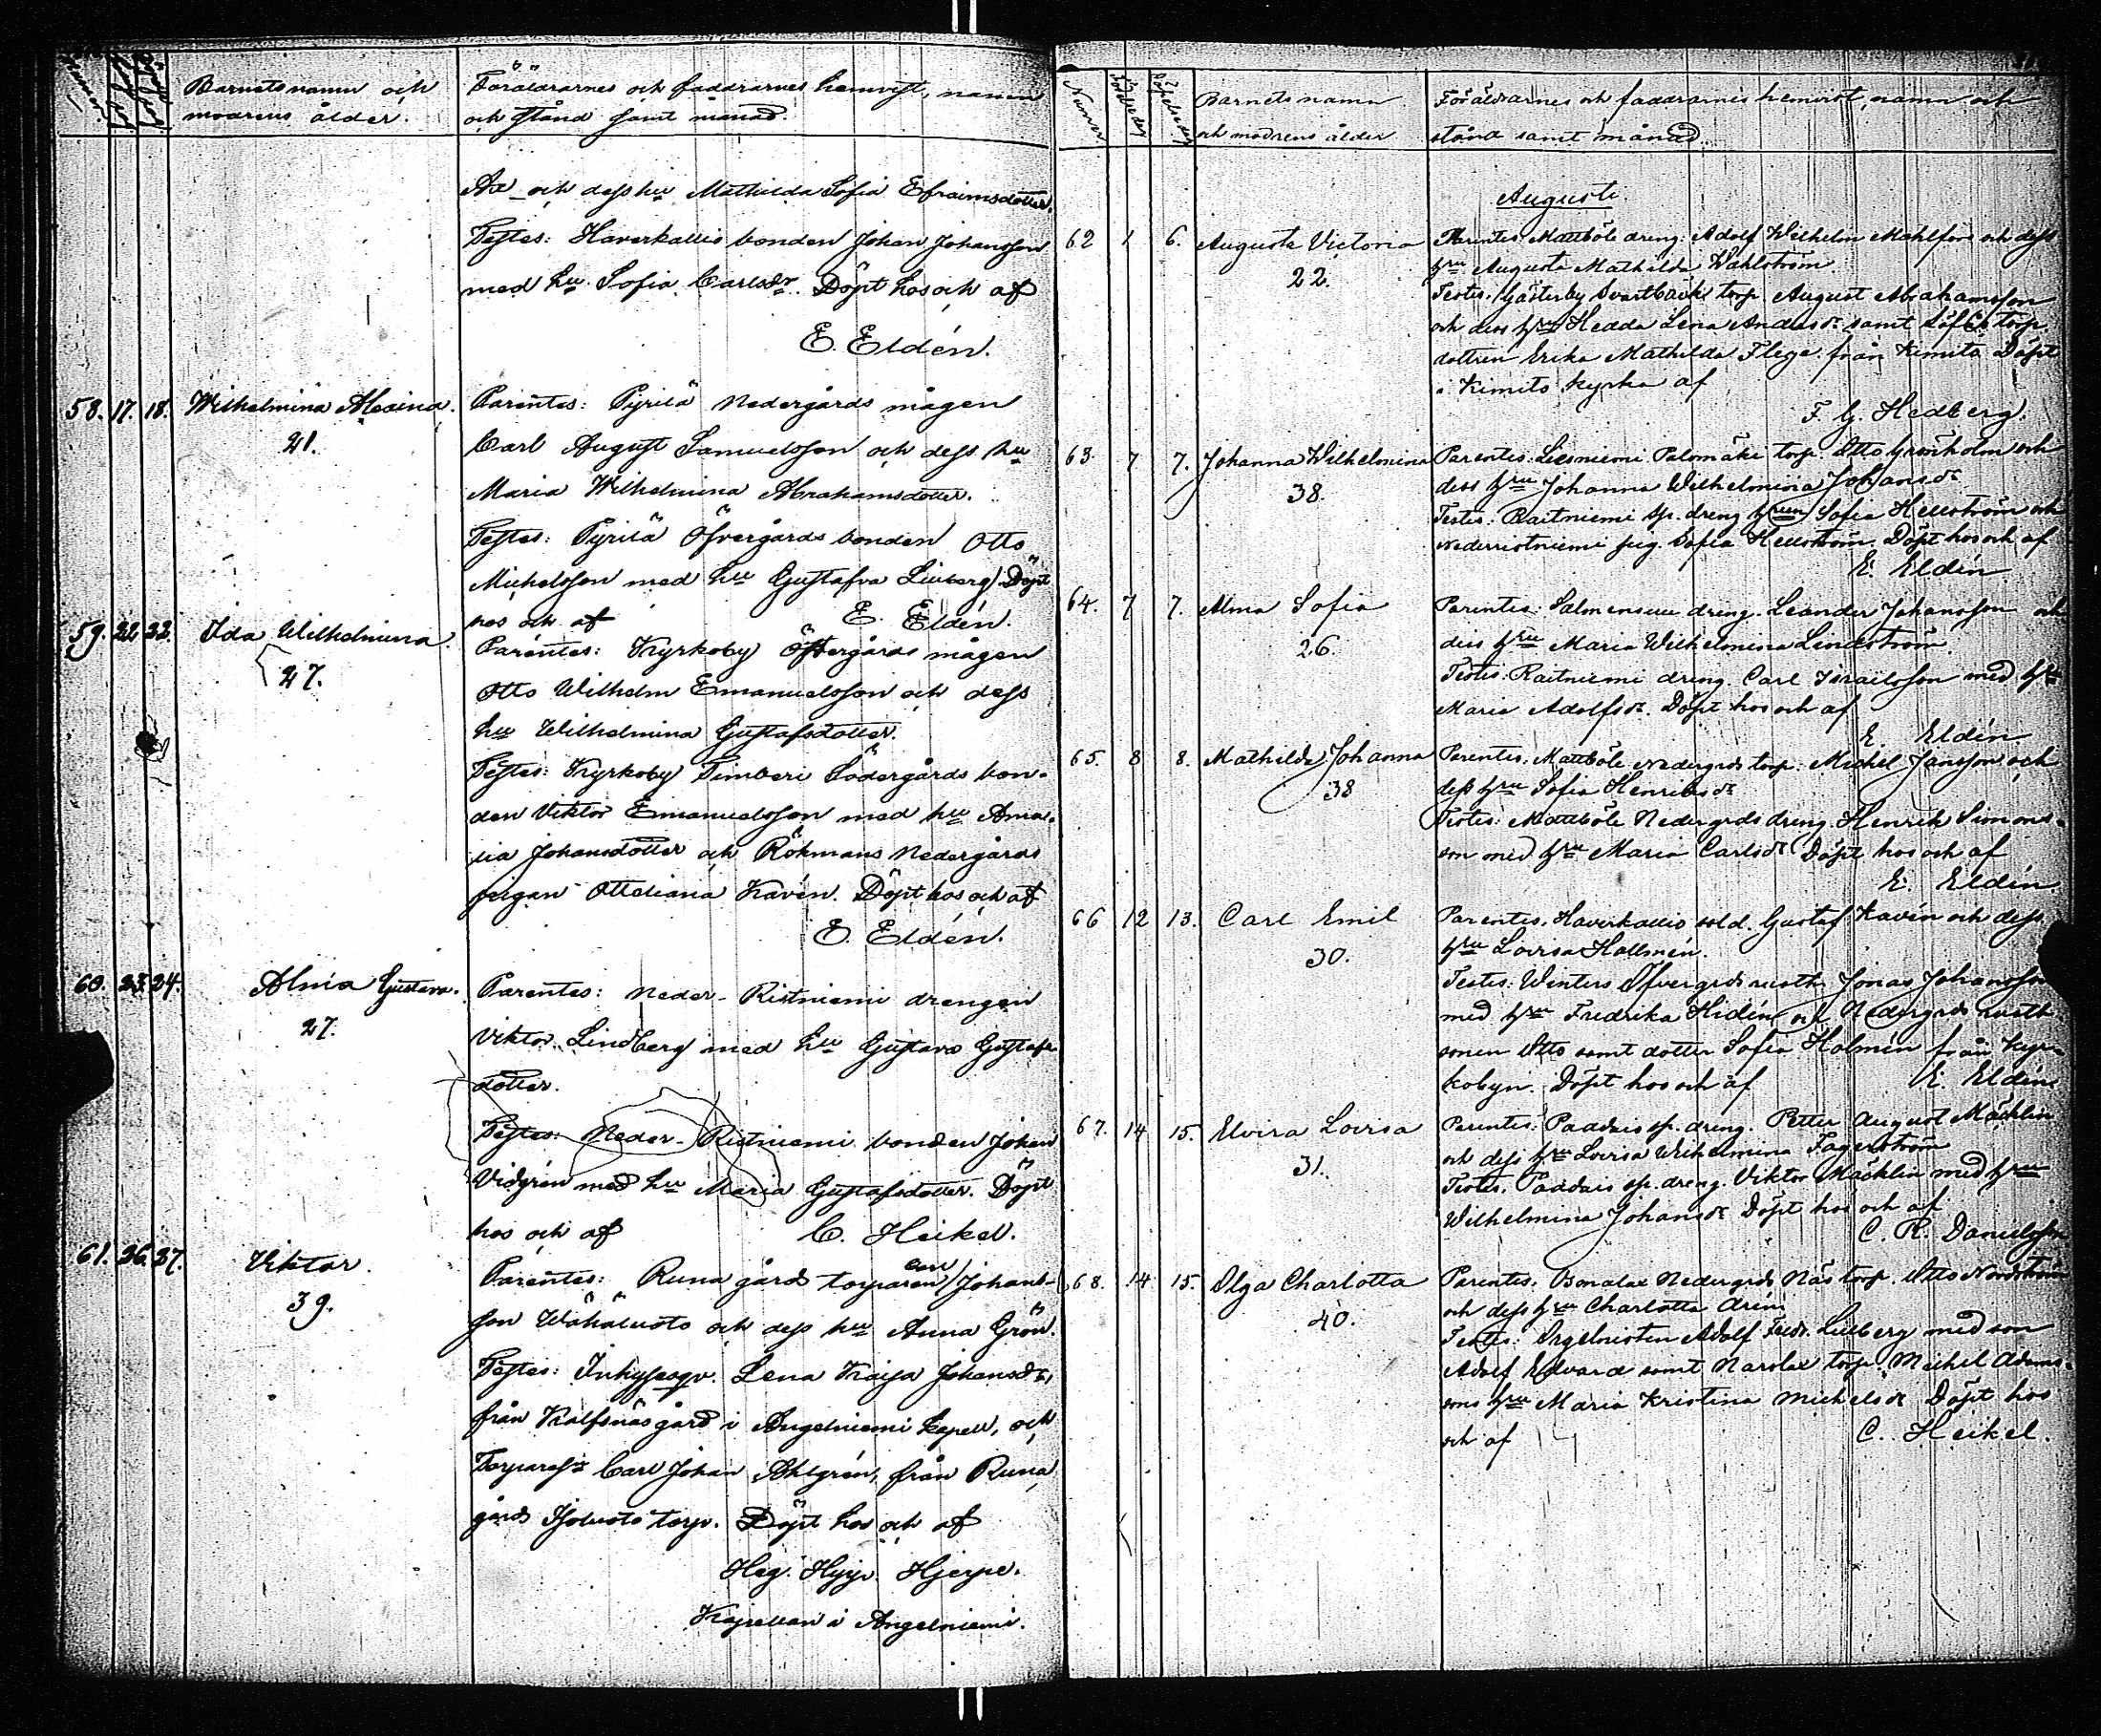 Barnets namn och
modrens ålder.
Föräldrarnes och faddrarnes hemvist, namn
och stånd samt månad.
och dess hu Mathilda Sofia Efraimsdotter.
Testes: Haverkallio bonden Johan Johansson
med hu Sofia Carlsdr. Döpt hos och af
E. Eldén.
58. 17. 18. Wilhelmina Alexina.
21.
Parentes: Pyrilä Nedergårds mågen
Carl August Samuelsson och dess hu
Maria Wilhelmina Abrahamsdotter.
Testes: Pyrilä Öfvergårds bonden Otto
Michelsson med hu Gustafva Döpt
hos och af E. Eldén.
59. 22. 23. Ida Wilhelmina.
27.
Parentes: Kyrkoby Öfvergårds mågen
Otto Wilhelm Emanuelsson och dess
hu Wilhelmina Gustafsdotter.
Testes: Kyrkoby Timberi Södergårds bon-
den Viktor Emanuelsson med hu Ama-
lia Johansdotter och Rökmans Nedergårds
pigan Ottiliana Kavén. Döpt hos och af
E. Eldén.
60. 23. 24. Alma Gustava.
27.
Parentes: Neder-Ristniemi drengen
Viktor Lindberg med hu Gustava Gustafs-
dotter.
Testes: Neder-Ristniemi bonden Johan
Vidgrén med hu Maria Gustafsdotter. Döpt
hos och af C. Heikel.
61. 26. 27. Viktor.
39.
Parentes: Runagårds torparen Johans-
son Wähäluoto och dess hu Anna Grön.
Testes: Inhysesqv. Lena Kaisa Johansdr,
från Kalfsnäs gård i Angelniemi kapell, och
Carl Johan Ahlgrén, från Runa
gårds torp. Döpt hos och af
Hjerpe.
Kapellan i Angelniemi.
Nummer Födelsedag Döpelsedag
Barnets namn
och modrens ålder
Föräldrarnes och faddrarnes hemvist, namn och
stånd samt månad.
Augusti.
62 1 6. Augusta Victoria
22.
Parentes: Mattböle dreng. Adolf Wilhelm och dess
hru Augusta Mathilda Wahlström.
Testes: Gästerby Svartbäck torp. August Abrahamsson
och dess hru Hedda Lena Andersdr. samt torp.
dottren Erika Mathilda Flege från Kimito. Döpt
i Kimito kyrka af
F. G. Hedberg.
63. 7 7. Johanna Wilhelmina
38.
Parentes: Liesniemi Palomäki torp. Otto Grönholm och
dess hru Johanna Wilhelmina Johansdr.
Testes: Raitniemi sp. dreng hrun Sofia Hellström och
Nederristniemi pig. Sofia Hellström. Döpt hos och af
E. Eldén
64. 7 7. Alma Sofia
26.
Parentes: Salmensuu dreng. Leander Johansson och
dess hru Maria Wilhelmina Lindström.
Testes: Raitniemi dreng. Carl Israelsson med hru
Maria Adolfsdr. Döpt hos och af
E. Eldén.
65. 8 8. Mathilda Johanna
38
Parentes: Mattböle Nedergrds torp. Michel Jansson och
dess hru Sofia Henriksdr
Testes: Mattböle Nedergrds dreng. Henrik Simons-
son med hru Maria Carlsdr. Döpt hos och af
E. Eldén
66 12 13. Carl Emil
30.
Parentes: Haverkallio sold. Gustaf Kavén och dess
hru Lovisa Hallmén.
Testes: Winters Öfvergrds rusth. Jonas Johansson
med hru Fredrika Hidén och Nedergrds rusth.
sonen Otto samt dotter Sofia Holmén från Kyr-
kobyn. Döpt hos och af E. Eldén
67. 14 15. Elvira Lovisa
31.
Parentes: Paddais sp. dreng. Petter August Mäcklin
och dess hru Lovisa Wilhelmina Fagerström
Testes: Paddais sp. dreng. Viktor Mäcklin med hru
Wilhelmina Johansdr Döpt hos och af
C. R. Danielsson
68. 14 15. Olga Charlotta
40.
Parentes: Bonalax Nedergrds Näs torp. Otto Nordström
och dess hru Charlotta Arén
Testes: Orgelnisten Adolf Fredr. Lillberg med son
Adolf Edvard samt Narolax torp. Michel Adams-
sons hru Maria Kristina Michelsdr Döpt hos
och af C. Heikel.